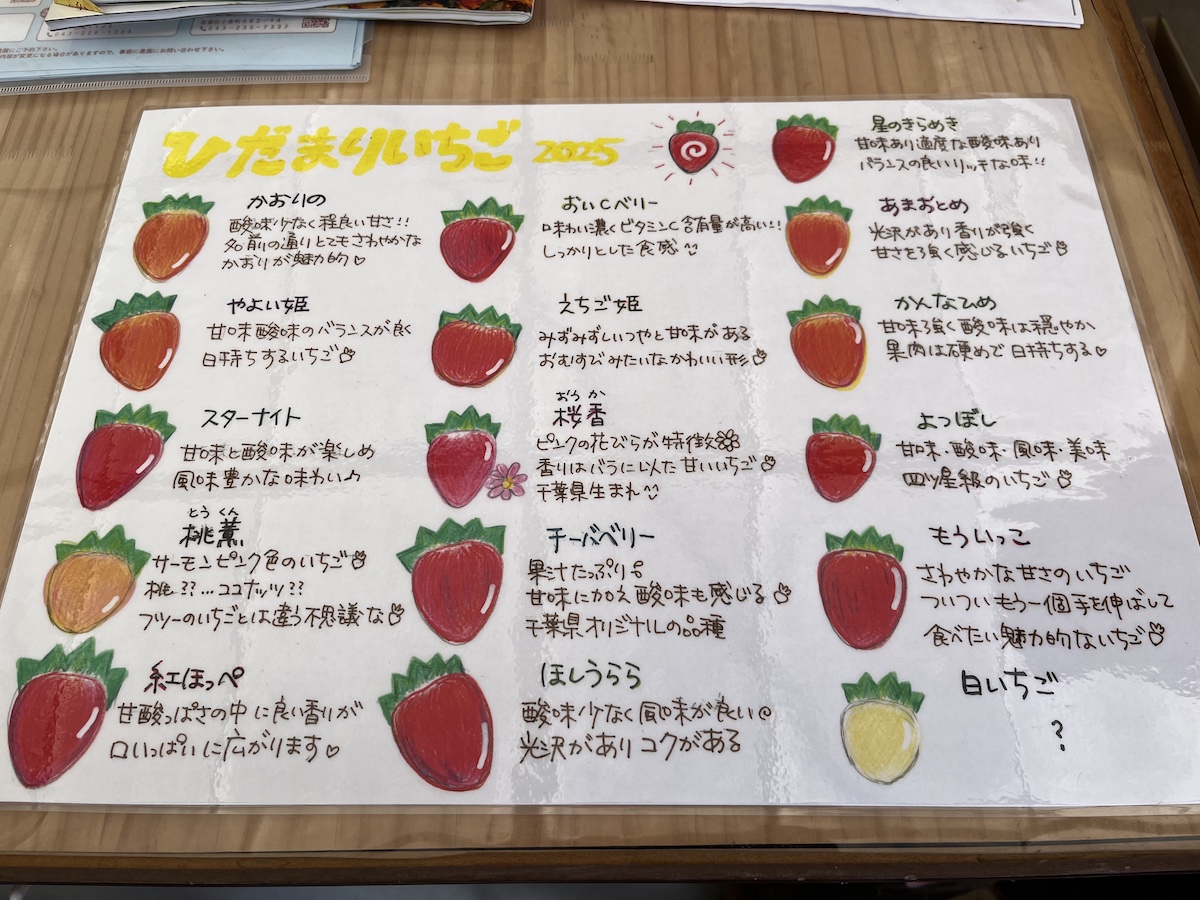 043-228-1255
043-235-7337
ひだまりいちご 2025
かおりの
酸味少なく程良い甘さ!!
名前の通りとてもさわやかな
かおりが魅力的♡
やよい姫
甘味酸味のバランスが良く
日持ちするいちご
スターナイト
甘味と酸味が楽しめ
風味豊かな味わい♪
とうくん
桃薫
サーモンピンク色のいちご
桃??...ココナッツ??
フツーのいちごとは違う不思議な
紅ほっぺ
甘酸っぱさの中に良い香りが
口いっぱいに広がります♡
おいCベリー
味わい濃くビタミンC含有量が高い!!
しっかりとした食感
えちご姫
みずみずしいつやと甘味がある
おむすびみたいなかわいい形
おうか
桜香
ピンクの花びらが特徴
香りはバラに似た甘いいちご
千葉県生まれ
チーバベリー
果汁たっぷり
甘味に加え酸味も感じる
千葉県オリジナルの品種
ほしうらら
酸味少なく風味が良い
光沢がありコクがある
星のきらめき
甘味あり適度な酸味あり
バランスの良いリッチな味!!
あまおとめ
光沢があり香りが強く
甘さを強く感じるいちご
かんなひめ
甘味強く酸味は穏やか
果肉は硬めで日持ちする♡
よつぼし
甘味・酸味・風味・美味
四ツ星級のいちご
もういっこ
さわやかな甘さのいちご
ついついもう一個手を伸ばして
食べたい魅力的ないちご
白いちご
?